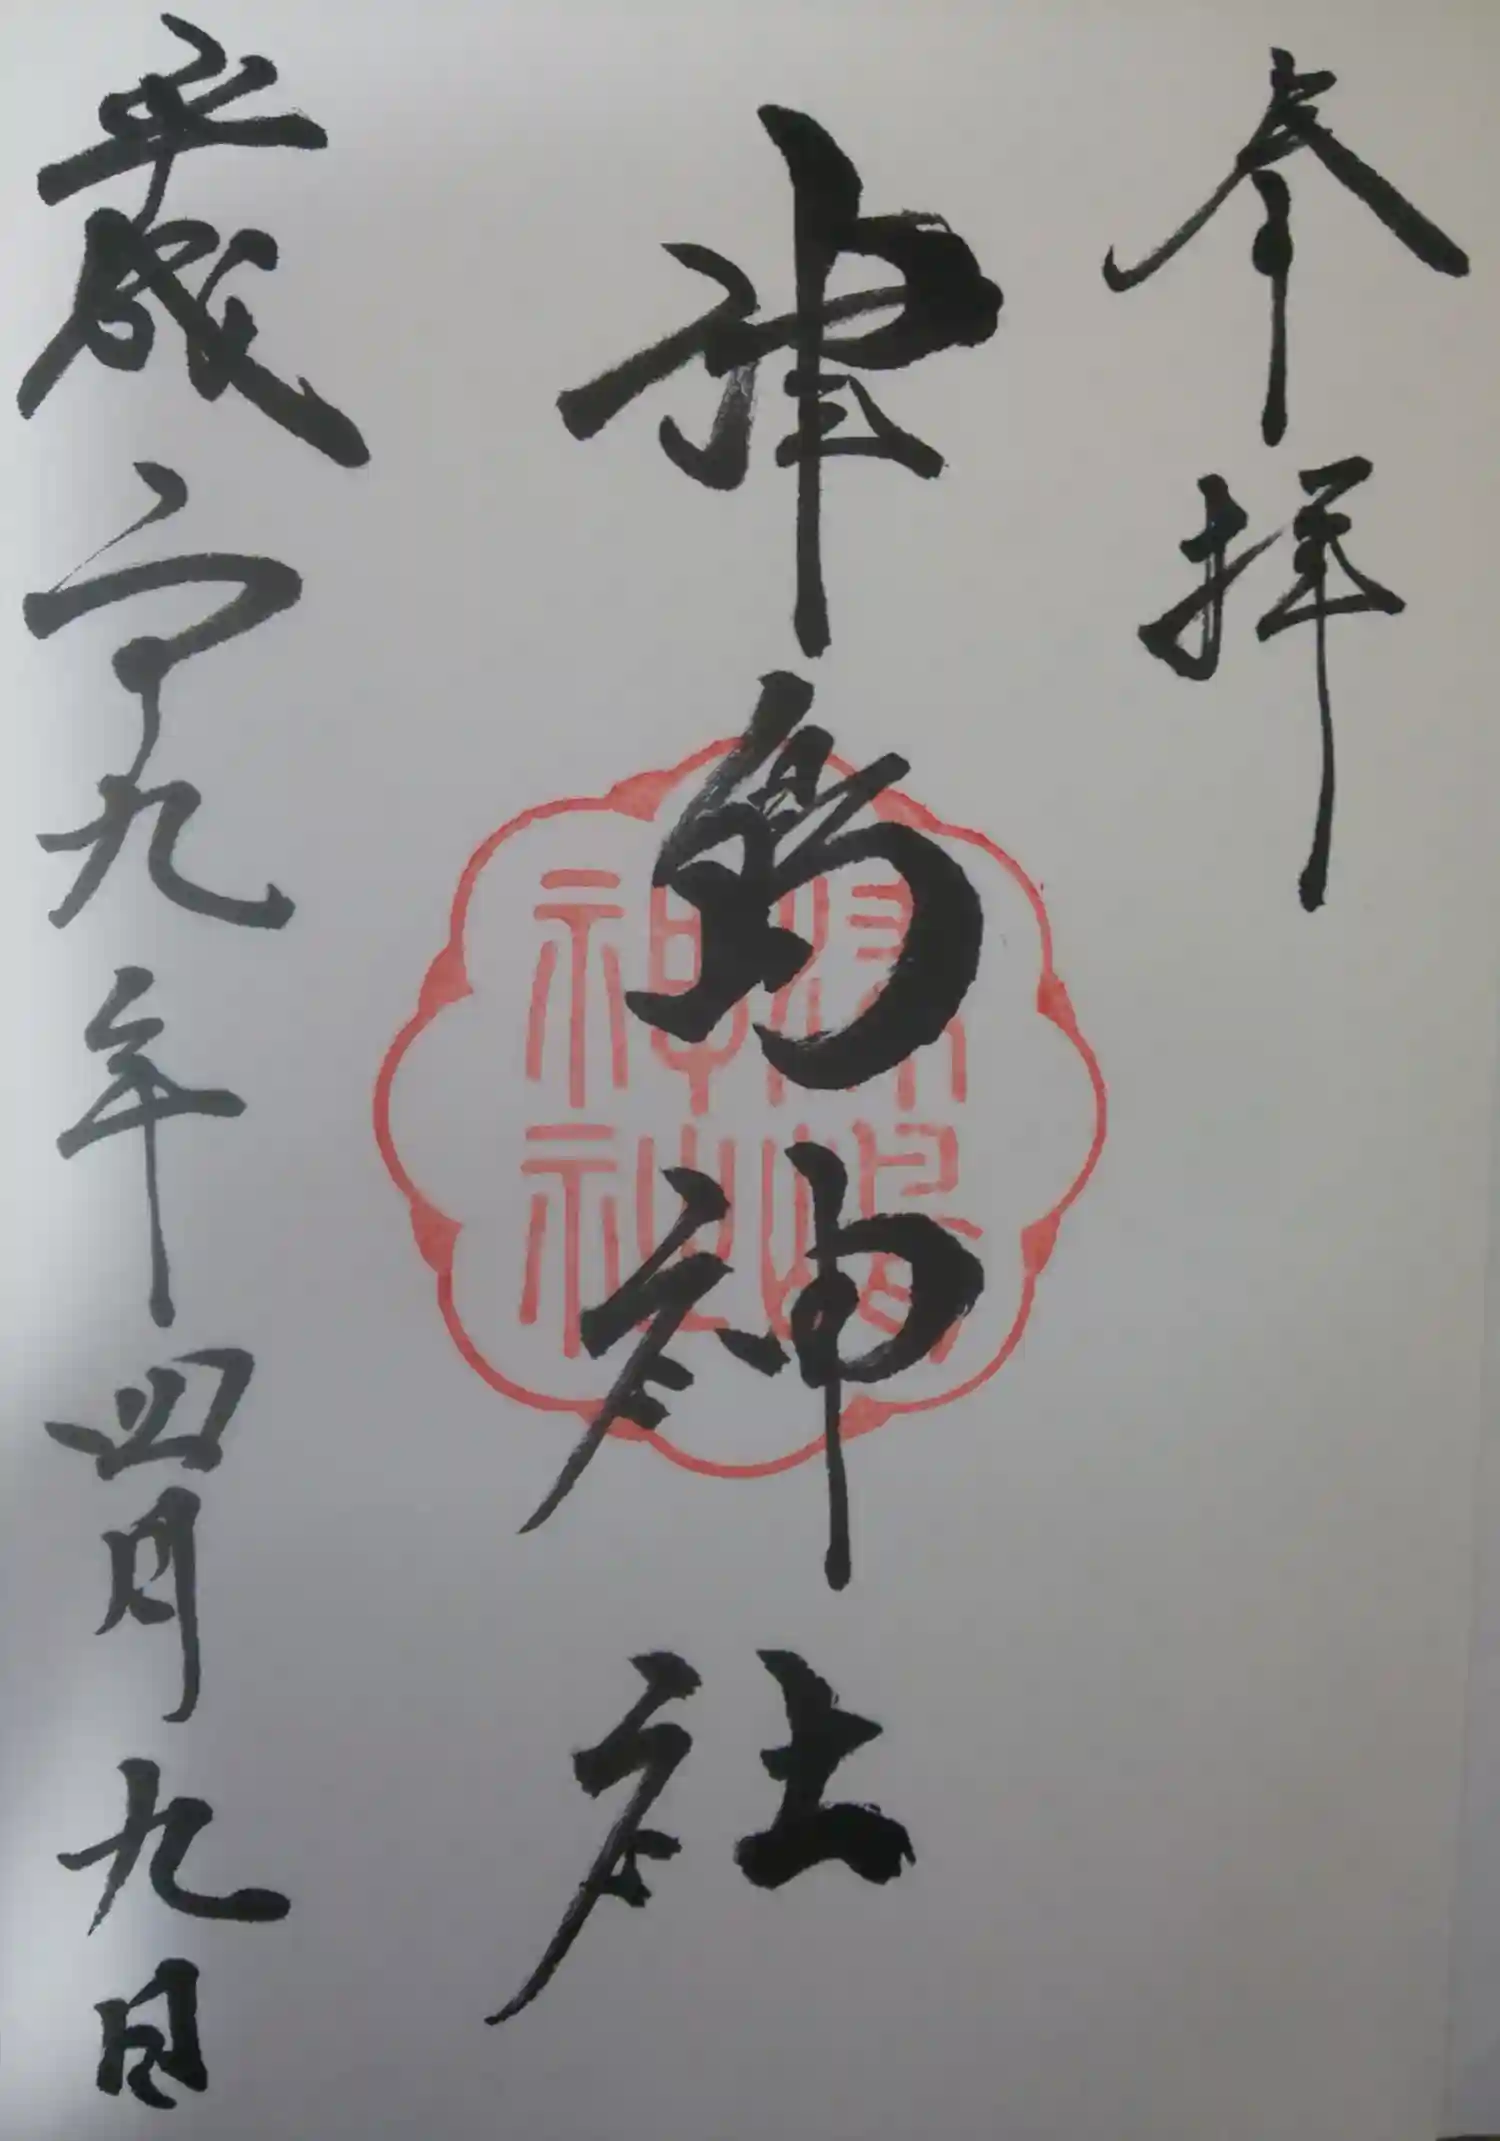 奉拝
島神社
平成二十九年四月九日
神社